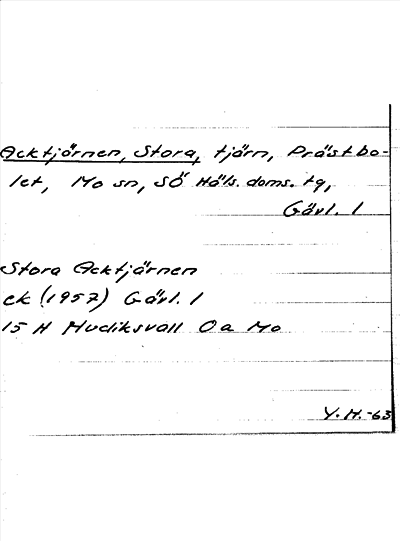 Acktjärnen, Stora, tjärn, Prästbo-
let, Mo sn, SÖ Häls. doms. tg,
Gävl. l
Stora Acktjärnen
ek (1957) Gävl. l
15 H Hudiksvall 0a Mo
Y.H.-63